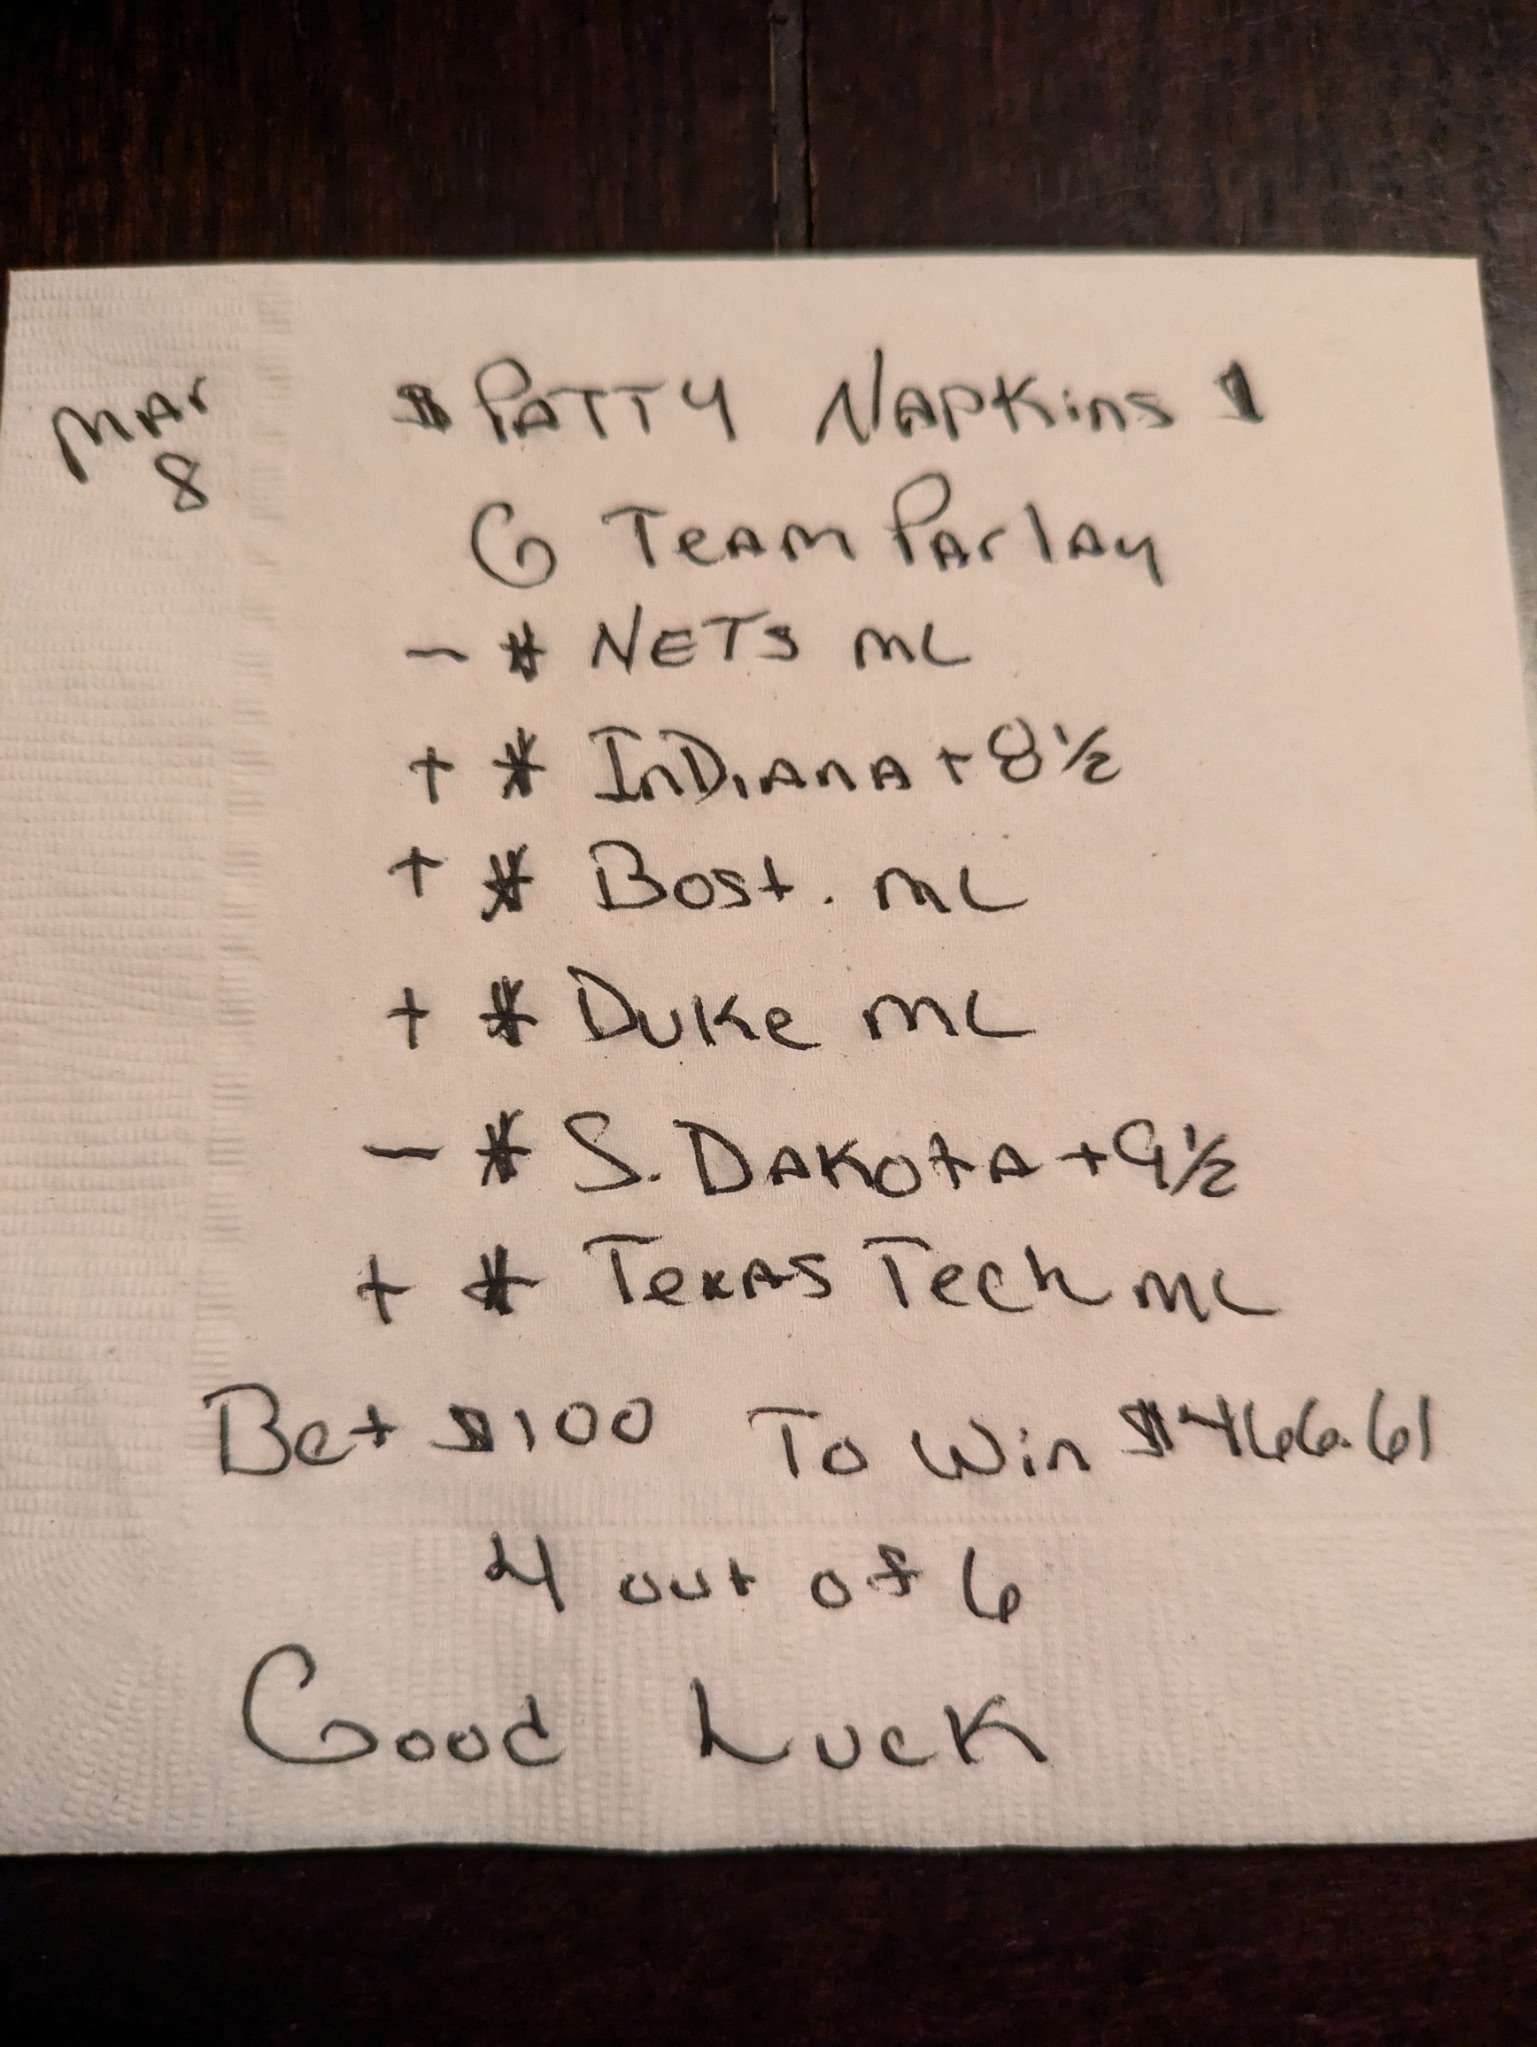 Mar
8
$ Patty Napkins $
6 Team Parlay
- * NETS ML
+ * Indiana + 8 ½
+ * Bost. ML
+ * Duke ML
- * S. Dakota + 9 ½
+ * Texas Tech ML
Bet $100 To Win $466.61
4 out of 6
Good Luck